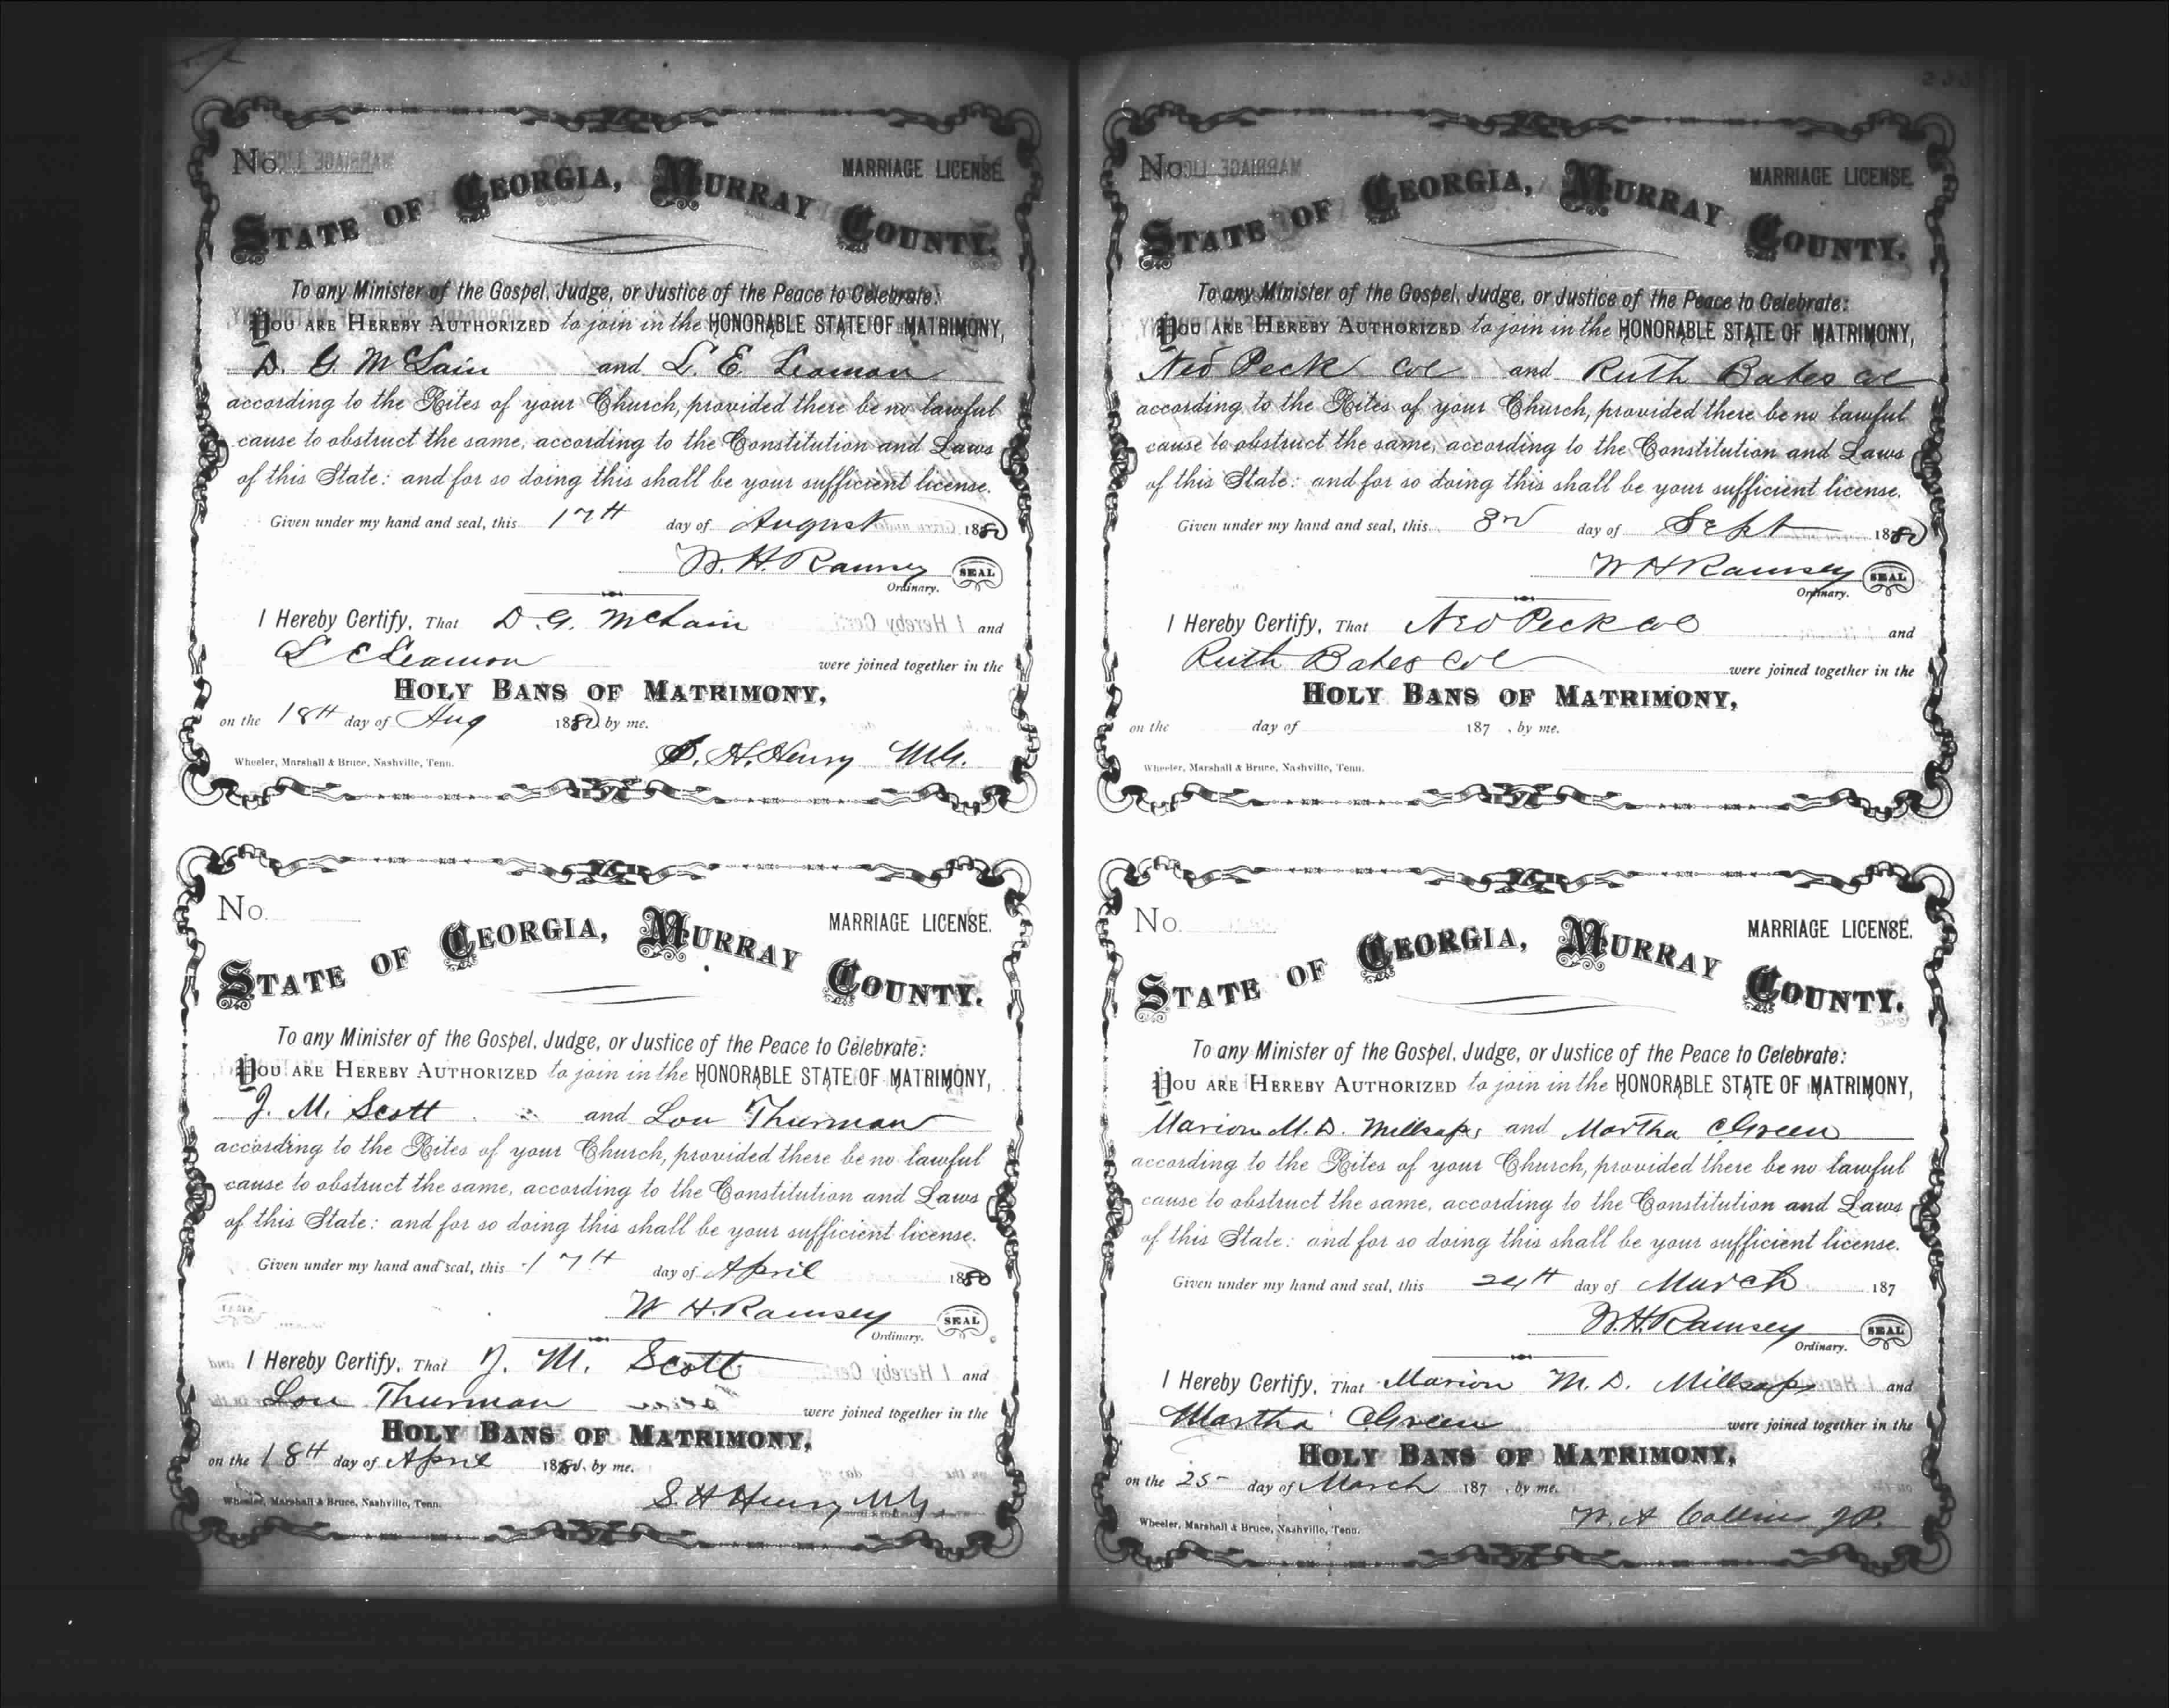 No. MARRIAGE LICENSE.
STATE OF GEORGIA, MURRAY COUNTY.
To any Minister of the Gospel, Judge, or Justice of the Peace to Celebrate:
YOU ARE HEREBY AUTHORIZED to join in the HONORABLE STATE OF MATRIMONY,
D. G. McLain and L. E. Leamon
according to the Rites of your Church, provided there be no lawful
cause to obstruct the same, according to the Constitution and Laws
of this State: and for so doing this shall be your sufficient license.
Given under my hand and seal, this 17th day of August 1880
W. H. Ramsey SEAL
Ordinary.
I Hereby Certify, That D. G. McLain and
L E Leamon were joined together in the
HOLY BANS OF MATRIMONY,
on the 18th day of Aug 1880 by me.
Wheeler, Marshall & Bruce, Nashville, Tenn. S. H. Henry M.G.
No. MARRIAGE LICENSE.
STATE OF GEORGIA, MURRAY COUNTY.
To any Minister of the Gospel, Judge, or Justice of the Peace to Celebrate:
YOU ARE HEREBY AUTHORIZED to join in the HONORABLE STATE OF MATRIMONY,
J. M. Scott and Lou Thurman
according to the Rites of your Church, provided there be no lawful
cause to obstruct the same, according to the Constitution and Laws
of this State: and for so doing this shall be your sufficient license.
Given under my hand and seal, this 17th day of April 1880
W H. Ramsey SEAL
Ordinary.
I Hereby Certify, That J. M. Scott and
Lou Thurman were joined together in the
HOLY BANS OF MATRIMONY,
on the 18th day of April 1880, by me.
Wheeler, Marshall & Bruce, Nashville, Tenn. S. H Henry M.G.
No. MARRIAGE LICENSE.
STATE OF GEORGIA, MURRAY COUNTY.
To any Minister of the Gospel, Judge, or Justice of the Peace to Celebrate:
YOU ARE HEREBY AUTHORIZED to join in the HONORABLE STATE OF MATRIMONY,
Ned Peck Col and Ruth Bates Col
according to the Rites of your Church, provided there be no lawful
cause to obstruct the same, according to the Constitution and Laws
of this State: and for so doing this shall be your sufficient license.
Given under my hand and seal, this 3rd day of Sept 1880
W H Ramsey SEAL
Ordinary.
I Hereby Certify, That Ned Peck Col and
Ruth Bates Col were joined together in the
HOLY BANS OF MATRIMONY,
on the day of 187 , by me.
Wheeler, Marshall & Bruce, Nashville, Tenn.
No. MARRIAGE LICENSE.
STATE OF GEORGIA, MURRAY COUNTY.
To any Minister of the Gospel, Judge, or Justice of the Peace to Celebrate:
YOU ARE HEREBY AUTHORIZED to join in the HONORABLE STATE OF MATRIMONY,
Marion M. D. Millsaps and Martha C Green
according to the Rites of your Church, provided there be no lawful
cause to obstruct the same, according to the Constitution and Laws
of this State: and for so doing this shall be your sufficient license.
Given under my hand and seal, this 24th day of March 187
W. H. Ramsey SEAL
Ordinary.
I Hereby Certify, That Marion M. D. Millsaps and
Martha C Green were joined together in the
HOLY BANS OF MATRIMONY,
on the 25 day of March 187 , by me.
Wheeler, Marshall & Bruce, Nashville, Tenn. W. A Collins J.P.